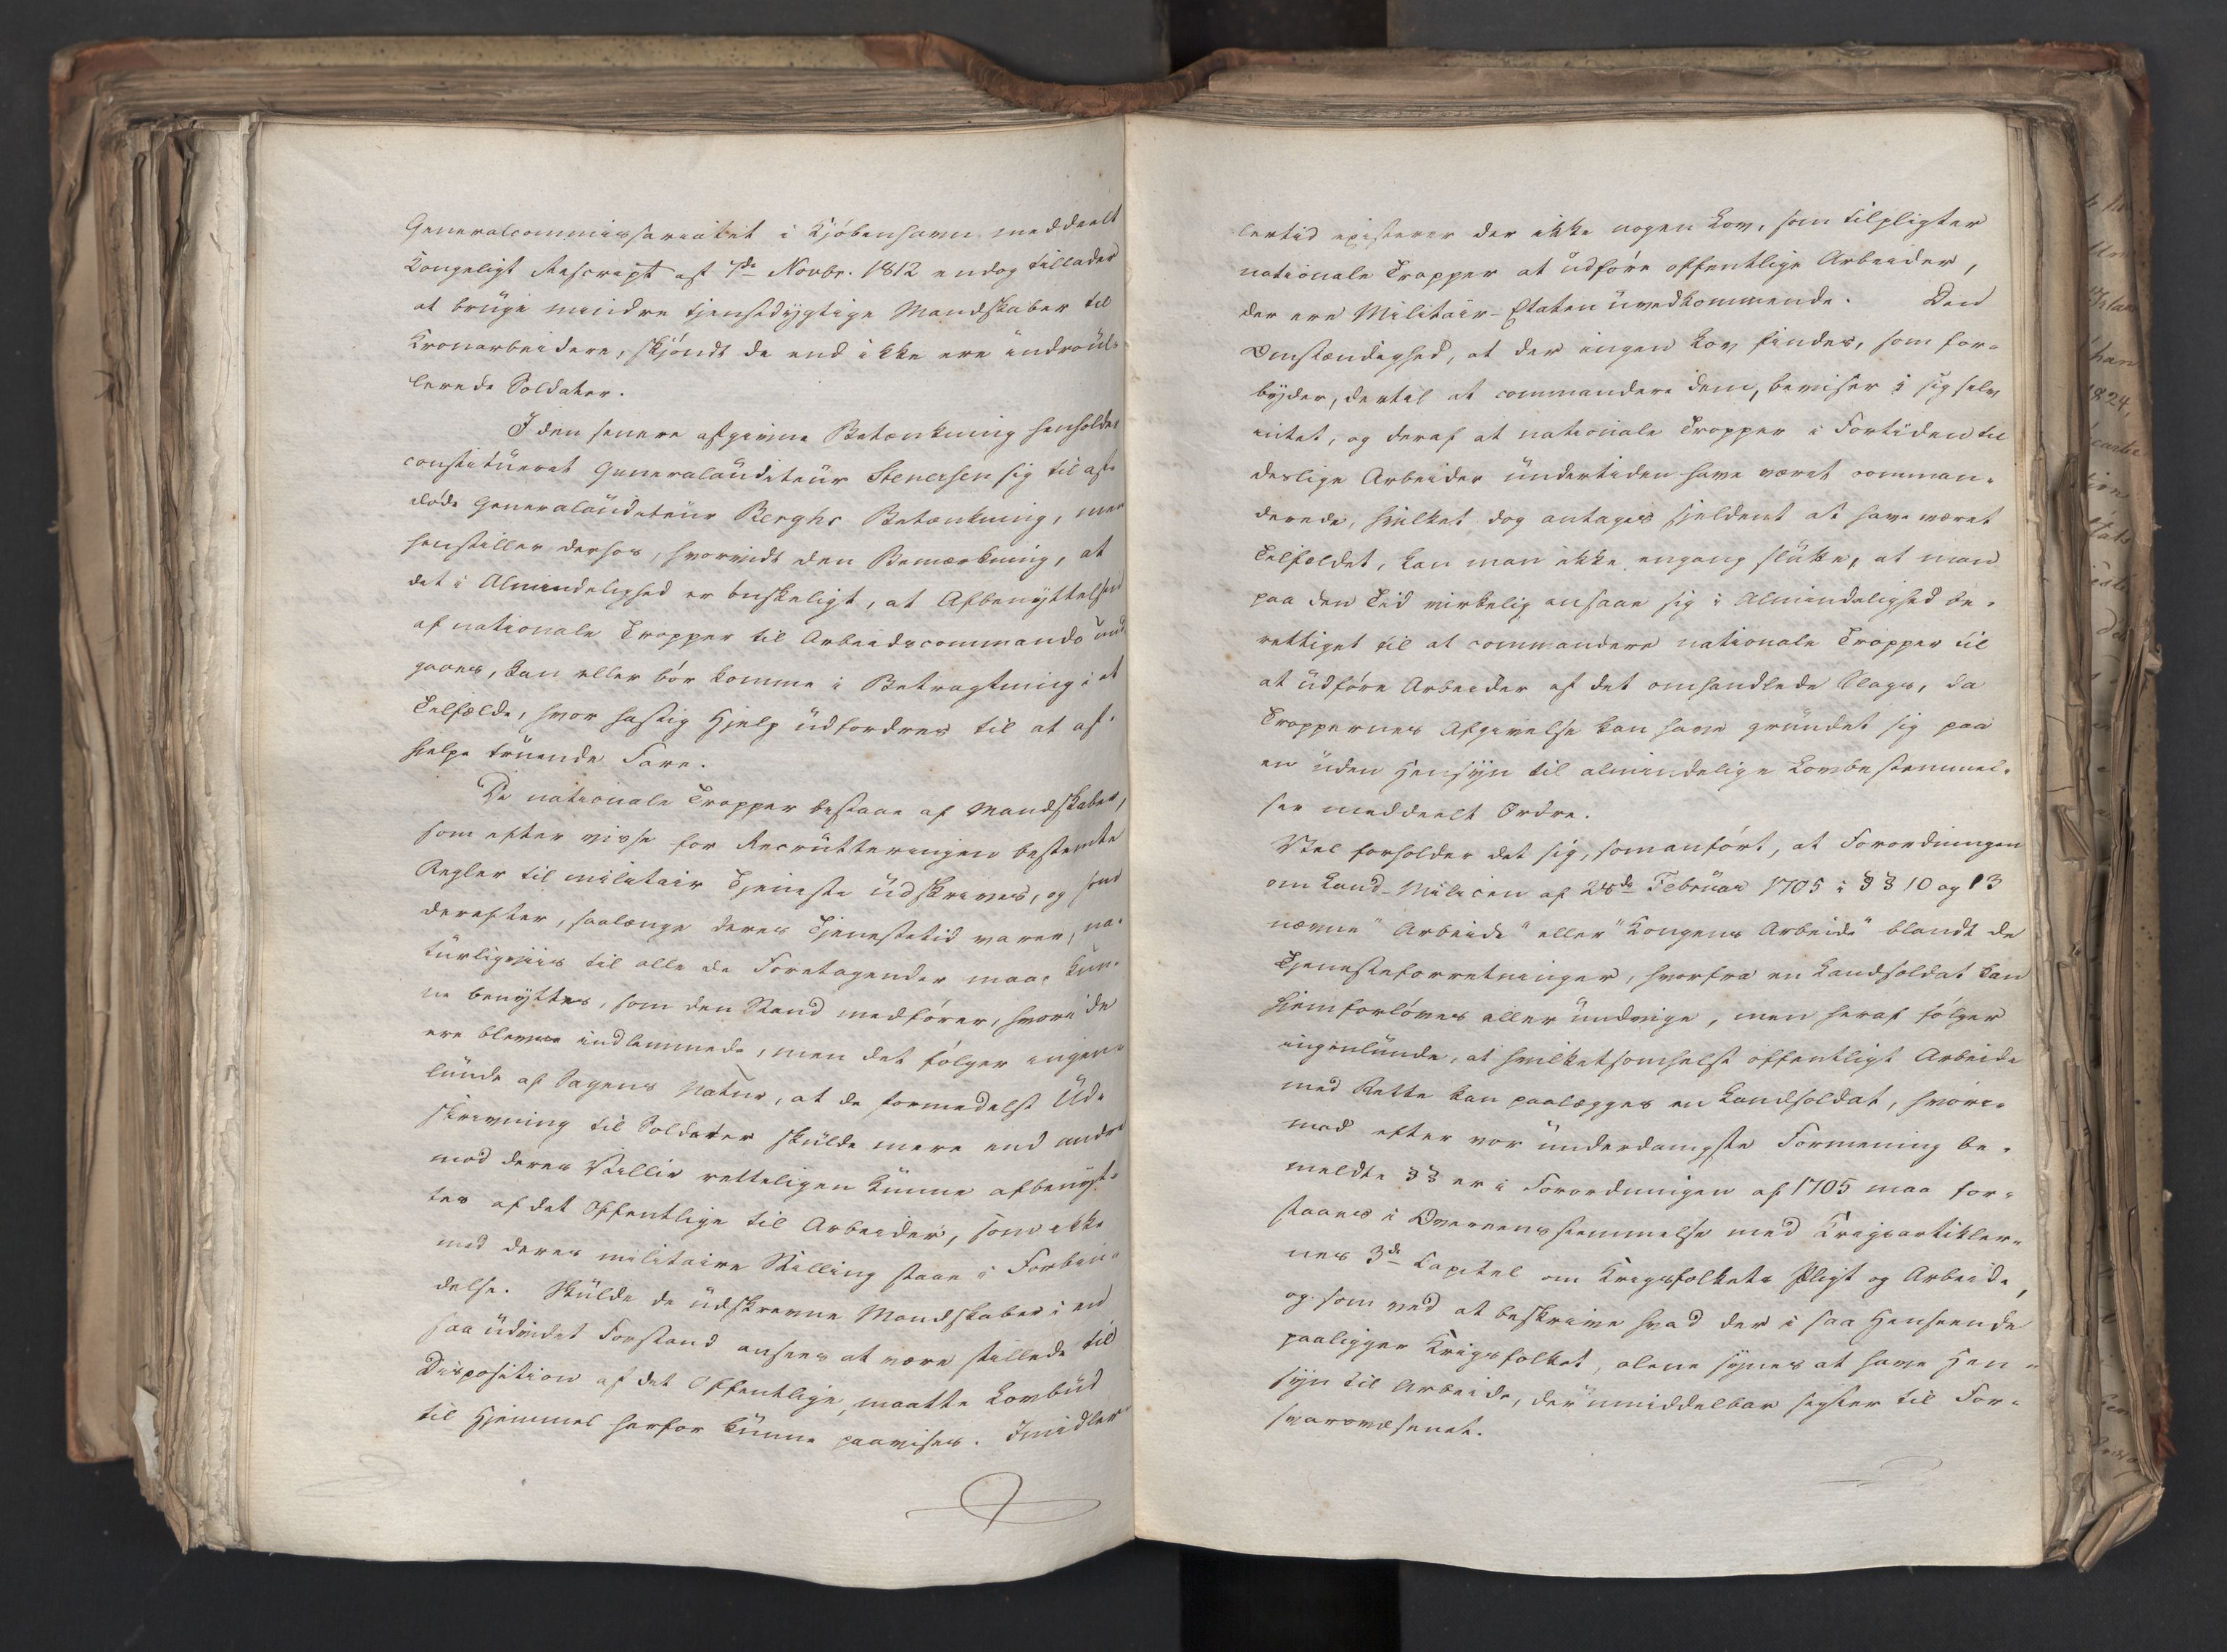 Generalcommissariatet i Kjöbenhavn meddeelt
Kongeligt Rescript af 7de Novbr. 1812 endog tillades
at bruge mindre tjenstdygtige Mandskaber til
Kronarbeidere, skjöndt de end ikke ere indroul-
lerede Soldater.
I den senere afgivne Betænkning henholder
constitueret Generalauditeur Stenersen sig til af-
döde Generalauditeur Berghs Betænkning, men
henstiller derhos, hvorvidt den Bemærkning, at
det i Almindelighed er önskeligt, at Afbenyttelsen
af nationale Tropper til Arbeidscommando und-
gaaes, kan eller bör komme i Betragtning i et
Tilfælde, hvor hastig Hjelp udfordres til at af-
hielpe truende Fare.
De nationale Tropper bestaae af Mandskaber,
som efter visse for Recrutteringen bestemte
Regler til militair Tjeneste udskrives, og som
derefter, saalænge deres Tjenestetid varer, na-
turligviis til alle de Foretagender maae kun-
ne benyttes, som den Stand medförer, hvori de
ere blevne indlemmede, men det fölger ingen-
lunde af Sagens Natur, at de formedelst Ud-
skrivning til Soldater skulde mere end andre
mod deres Villie retteligen kunne afbenyt-
tes af det Offentlige til Arbeider, som ikke
med deres militaire Stilling staae i Forbin-
delse. Skulde de udskrevne Mandskaber i en
saa udvidet Forstand ansees at være stillede til
Disposition af det Offentlige, maatte Lovbud
til Hjemmel herfor kunne paavises. Imidler-
lertid existerer der ikke nogen Lov, som tilpligter
nationale Tropper at udföre offentlige Arbeider,
der ere Militair-Etaten uvedkommende. Den
Omstændighed, at der ingen Lov findes, som for-
byder, dertil at commandere dem, beviser i sig selv
intet, og deraf at nationale Tropper i Fortiden til
deslige Arbeider undertiden have været comman-
derede, hvilket dog antages sjeldent at have været
Tilfældet, kan man ikke engang slutte, at man
paa den Tid virkelig ansaae sig i Almindelighed be-
rettiget til at commandere nationale Tropper til
at udföre Arbeider af det omhandlede Slags, da
Troppernes Afgivelse kan have grundet sig paa
en uden Hensyn til almindelige Lovbestemmel-
ser meddeelt Ordre.
Vel forholder det sig, som anfört, at Forordningen
om Land-Milicen af 28de Februar 1705 i §§ 10 og 13
nævne "Arbeide" eller "Kongens Arbeide" blandt de
Tjenesteforretninger, hvorfra en Landsoldat kan
hiemforlöves eller undvige, men heraf fölger
ingenlunde, at hvilketsomhelst offentligt Arbeide
med Rette kan paalægges en Landsoldat, hvori-
mod efter vor underdanigste Formening be-
meldte §§ er i Forordningen af 1705 maa for-
staaes i Overeensstemmelse med Krigsartikler-
nes 3de Capitel om Krigsfolkets Pligt og Arbeide,
og som ved at beskrive hvad der i saa Henseende
paaligger Krigsfolket, alene synes at have Hen-
syn til Arbeide, der umiddelbar sigter til For-
svarsvæsenet.